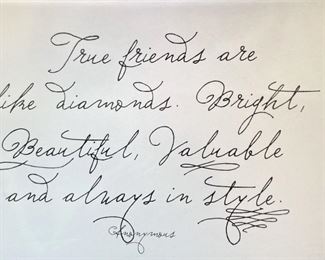 True friends are
like diamonds. Bright,
Beautiful, Valuable
and always in style.
Anonymous